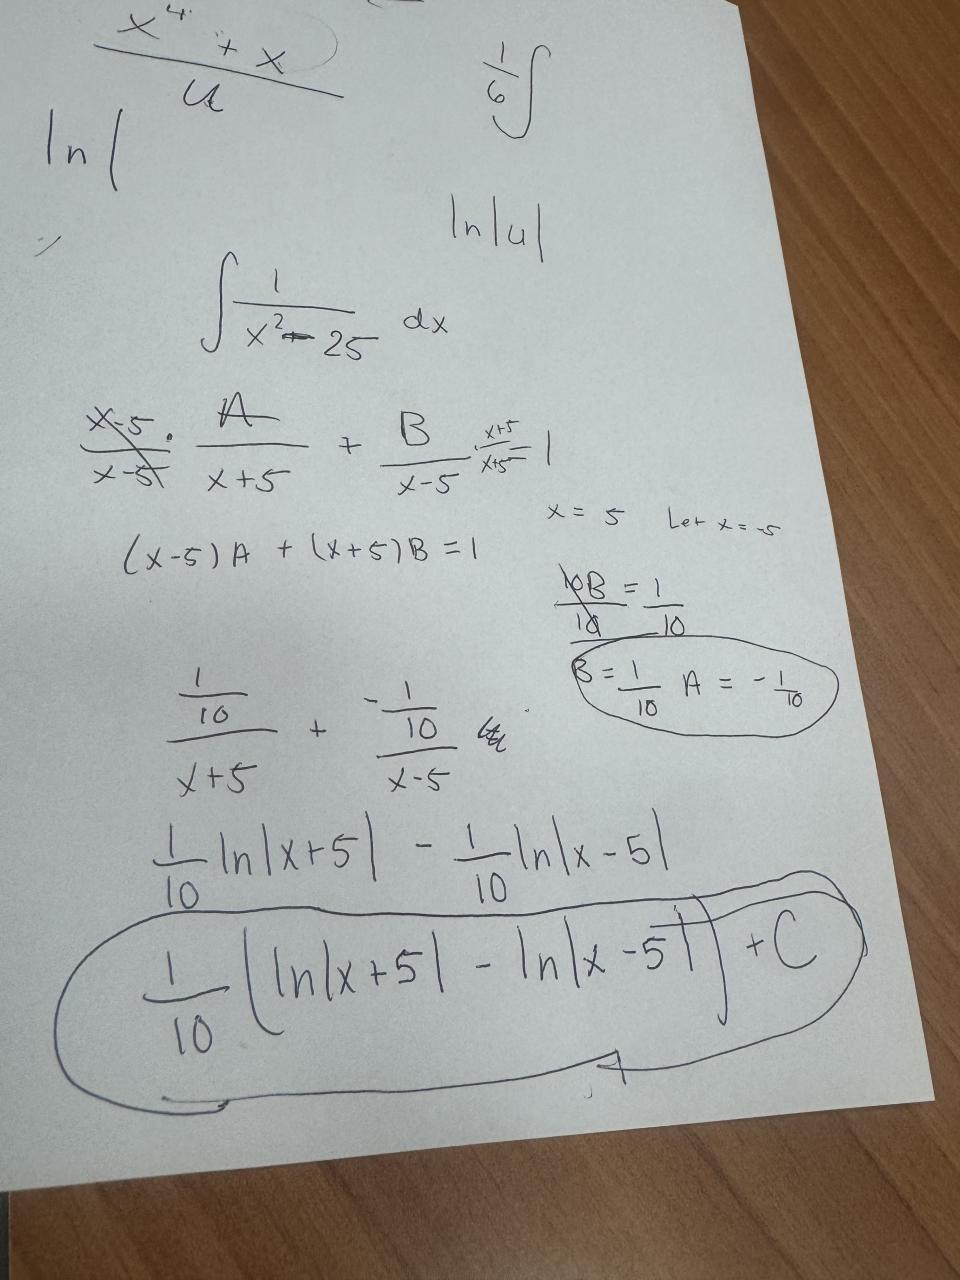 x⁴ + x
u
1/6 ∫
ln |
ln|u|
∫ 1/(x² - 25) dx
(x-5)/(x-5) · A/(x+5) + B/(x-5) · (x+5)/(x+5) = 1
x = 5 Let x = -5
(x-5)A + (x+5)B = 1
10B/10 = 1/10
B = 1/10 A = -1/10
(1/10)/(x+5) + (-1/10)/(x-5)
1/10 ln|x+5| - 1/10 ln|x-5|
1/10 (ln|x+5| - ln|x-5|) + C